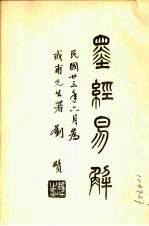 墨經易解
民國廿三年六月為
戒甫先生署 劉賾